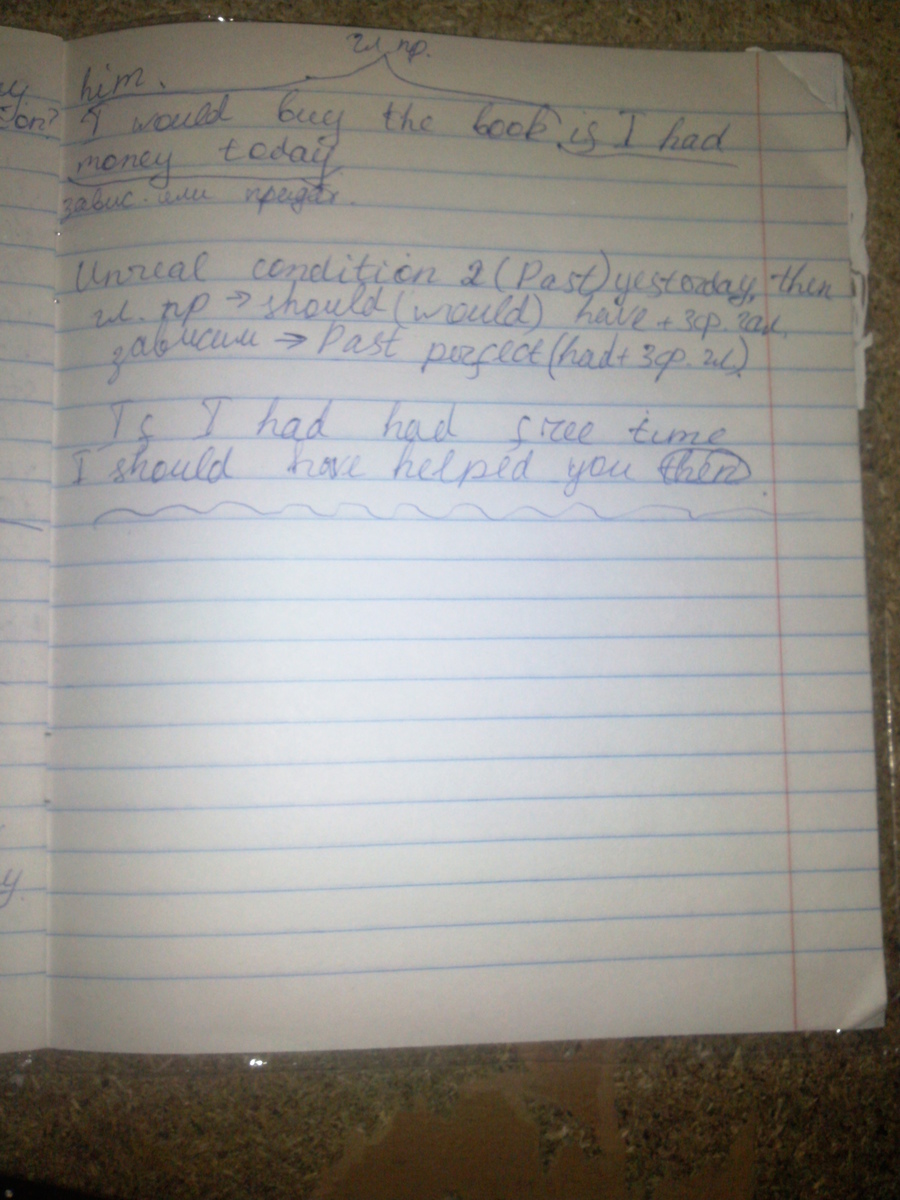 гл. пр.
him.
tion?
I would buy the book is I had
money today
завис. или придат.
Unreal condition 2 (Past) yestorday, then
гл. пр → should (would) have + 3ф. гл.
зависим → Past perfect (had + 3ф. гл.)
If I had had free time
I should have helped you then.
y.